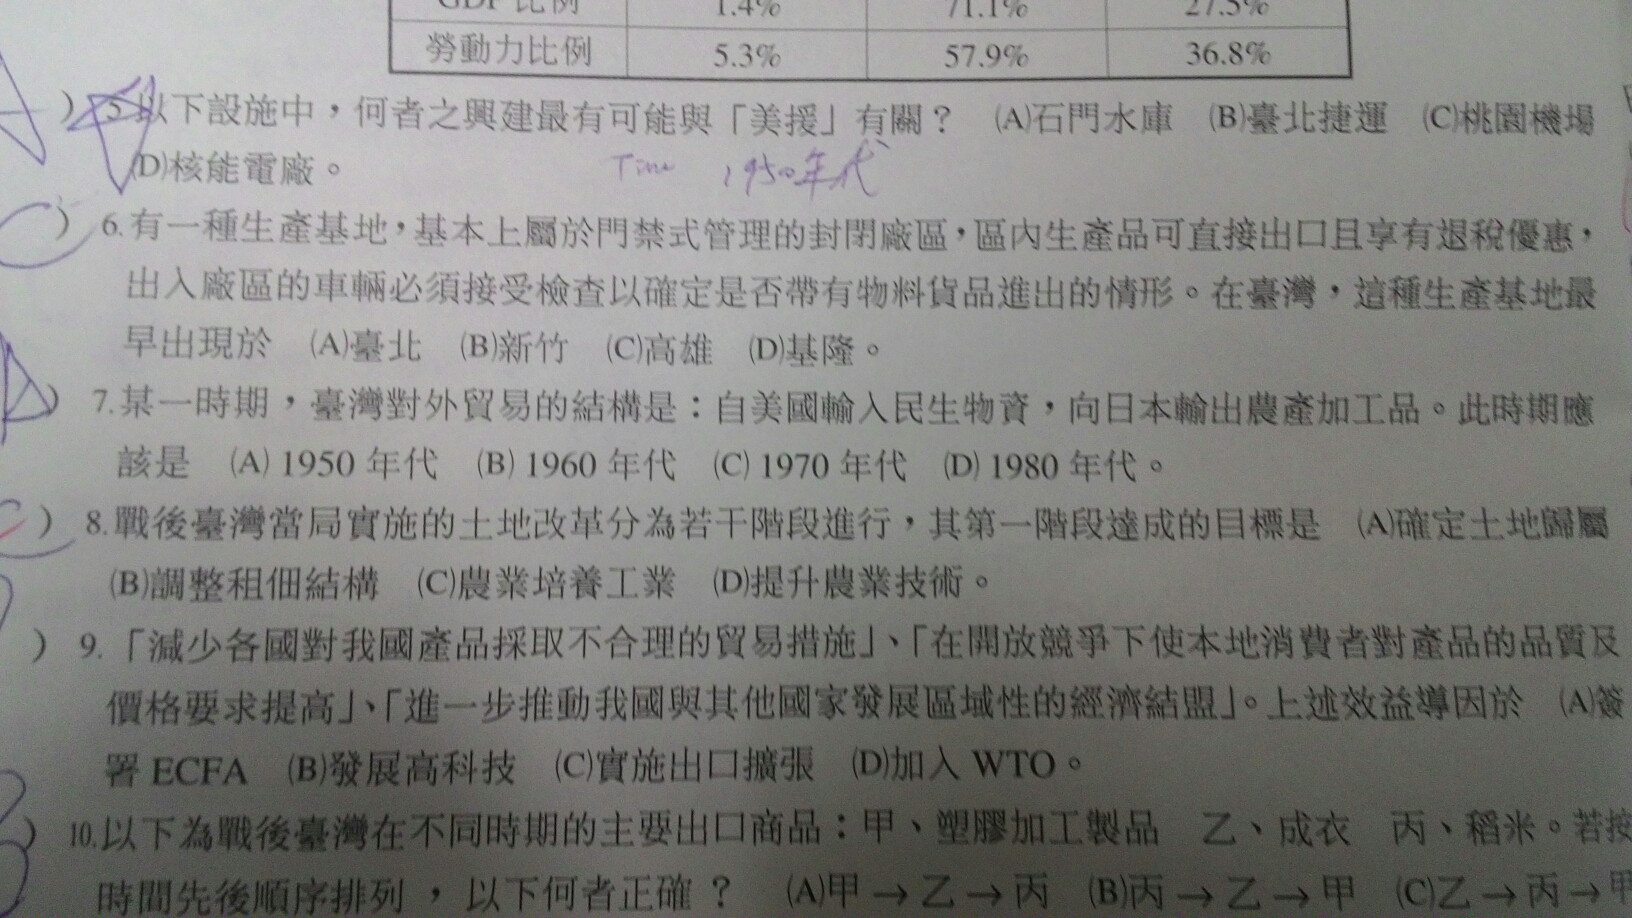 GDP比例 1.4% 71.1% 27.5%
勞動力比例 5.3% 57.9% 36.8%
) 5.以下設施中，何者之興建最有可能與「美援」有關？ (A)石門水庫 (B)臺北捷運 (C)桃園機場
(D)核能電廠。
Time 1950年代
C ) 6.有一種生產基地，基本上屬於門禁式管理的封閉廠區，區內生產品可直接出口且享有退稅優惠，
出入廠區的車輛必須接受檢查以確定是否帶有物料貨品進出的情形。在臺灣，這種生產基地最
早出現於 (A)臺北 (B)新竹 (C)高雄 (D)基隆。
A ) 7.某一時期，臺灣對外貿易的結構是：自美國輸入民生物資，向日本輸出農產加工品。此時期應
該是 (A) 1950 年代 (B) 1960 年代 (C) 1970 年代 (D) 1980 年代。
C ) 8.戰後臺灣當局實施的土地改革分為若干階段進行，其第一階段達成的目標是 (A)確定土地歸屬
(B)調整租佃結構 (C)農業培養工業 (D)提升農業技術。
) 9.「減少各國對我國產品採取不合理的貿易措施」、「在開放競爭下使本地消費者對產品的品質及
價格要求提高」、「進一步推動我國與其他國家發展區域性的經濟結盟」。上述效益導因於 (A)簽
署 ECFA (B)發展高科技 (C)實施出口擴張 (D)加入 WTO。
) 10.以下為戰後臺灣在不同時期的主要出口商品：甲、塑膠加工製品 乙、成衣 丙、稻米。若按
時間先後順序排列，以下何者正確？ (A)甲→乙→丙 (B)丙→乙→甲 (C)乙→丙→甲